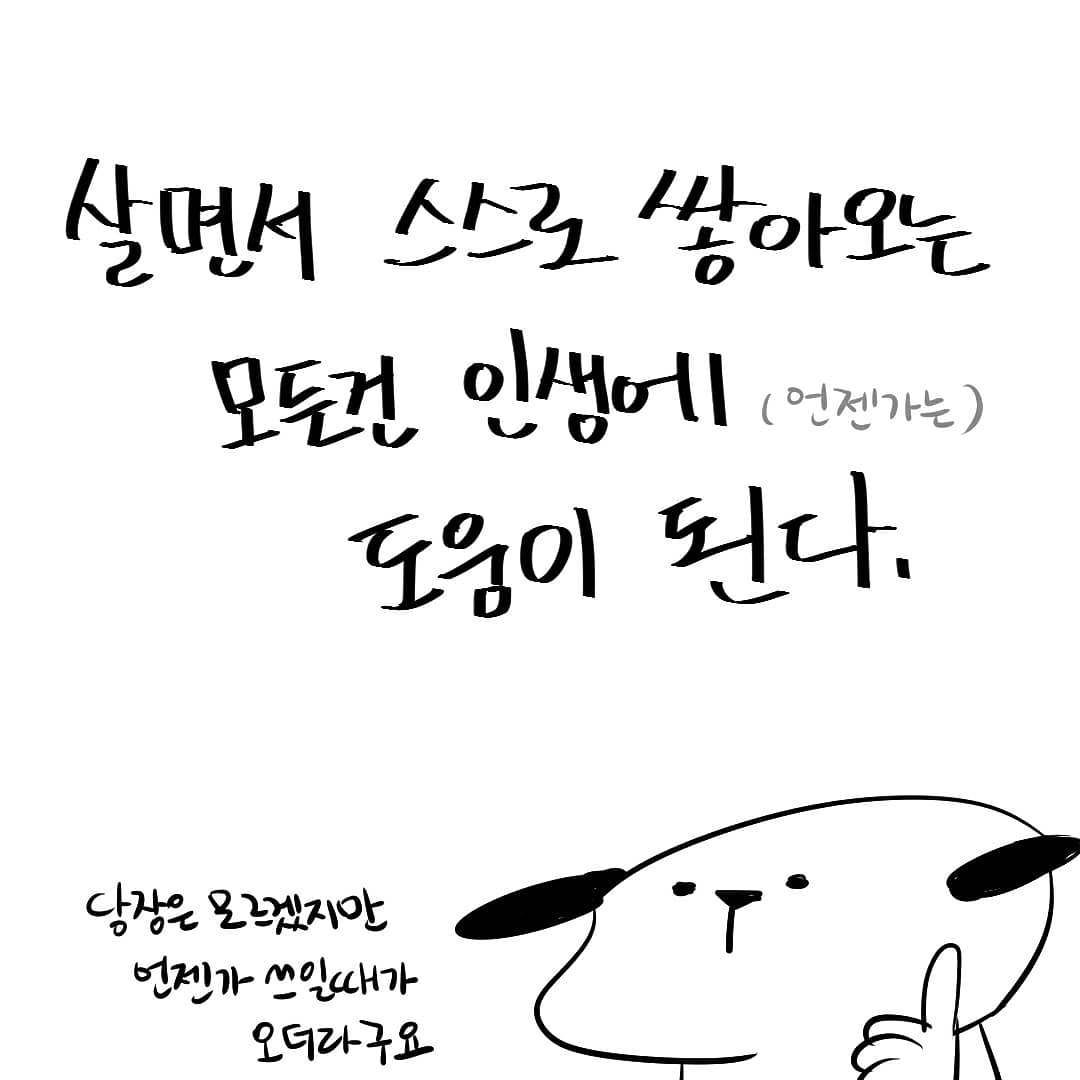 살면서 스스로 쌓아오는
모든건 인생에 (언젠가는)
도움이 된다.
당장은 모르겠지만
언젠가 쓰일때가
오더라구요